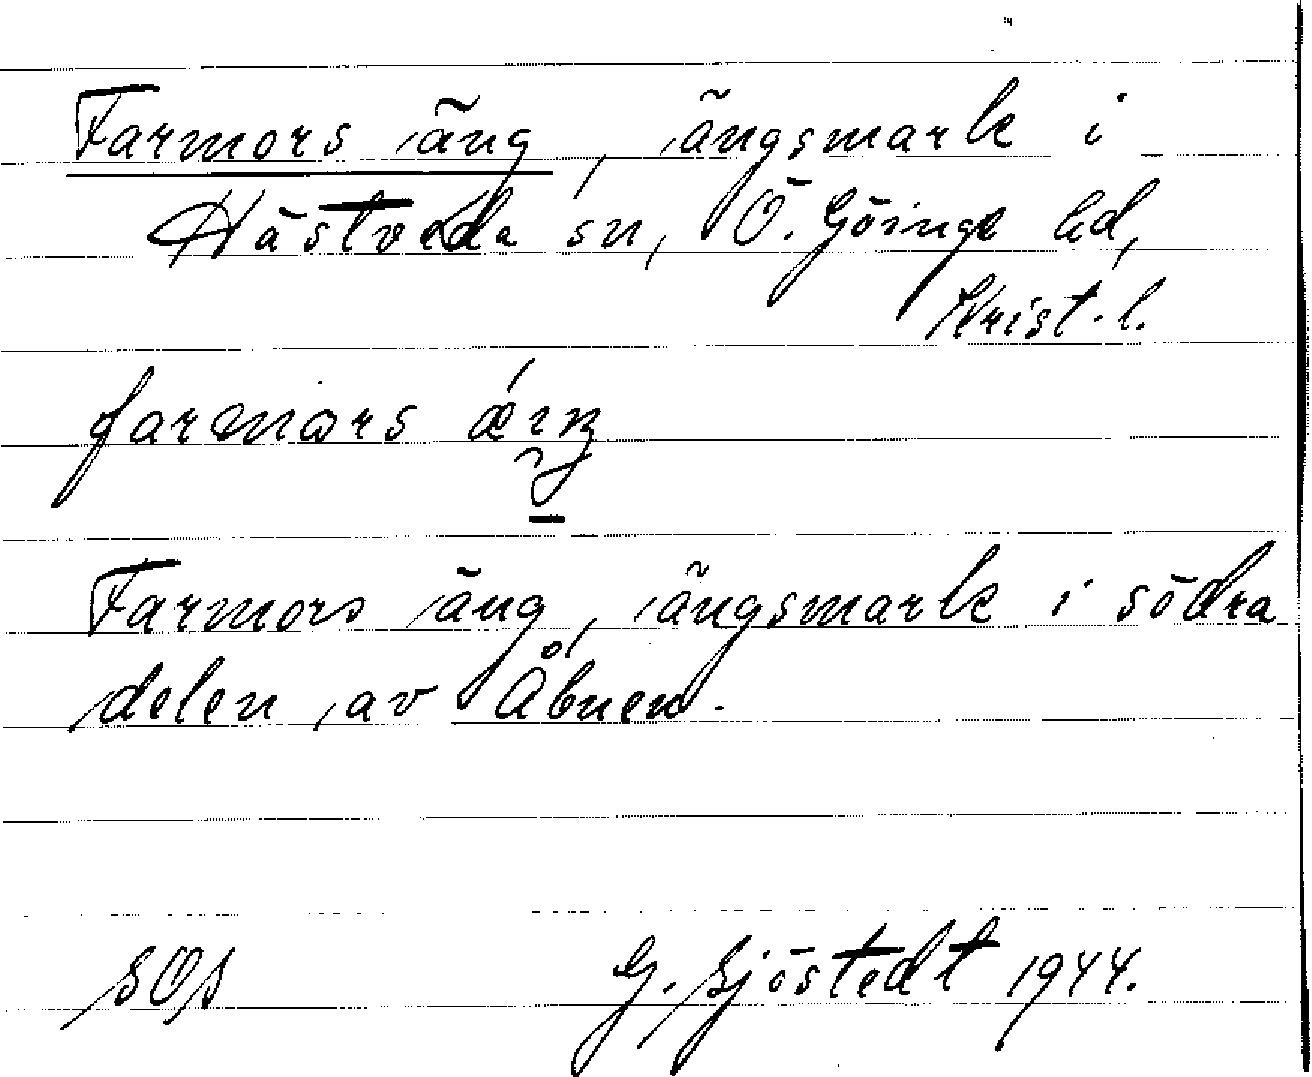 Farmors äng, ängsmark i
Hästveda sn, Ö. Göinge hd,
Krist. l.
farmors
Farmors äng, ängsmark i södra
delen av Åbuen.
SOS G. Sjöstedt 1944.